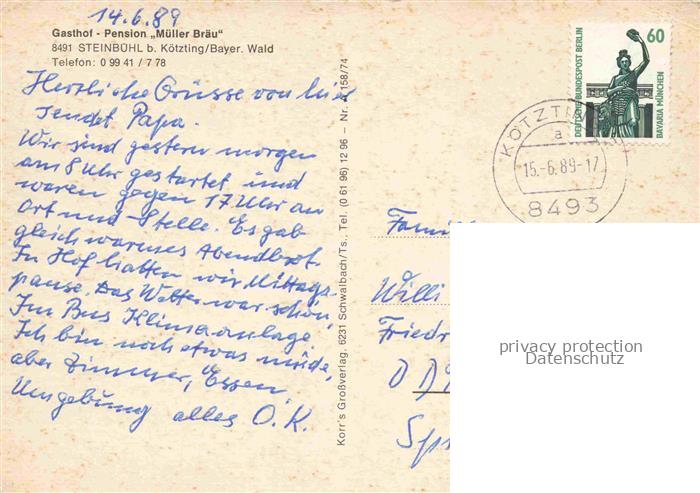 14.6.89
Gasthof - Pension „Müller Bräu"
8491 STEINBÜHL b. Kötzting/Bayer. Wald
Telefon: 0 99 41 / 7 78
Herzliche Grüsse von hier
sendet Papa.
Wir sind gestern morgen
um 8 Uhr gestartet und
waren gegen 17 Uhr an
Ort und Stelle. Es gab
gleich warmes Abendbrot.
In Hof hatten wir Mittags-
pause. Das Wetter war schön,
Im Bus Klimaanlage.
Ich bin noch etwas müde,
aber Zimmer, Essen,
Umgebung alles O.K.
Korr's Großverlag, 6231 Schwalbach/Ts., Tel. (0 61 96) 12 96 – Nr. A 158/74
DEUTSCHE BUNDESPOST BERLIN
60
BAVARIA MÜNCHEN
KÖTZTING
a
15.-6.89-17
8493
Willi
Friedr
Spr
privacy protection
Datenschutz